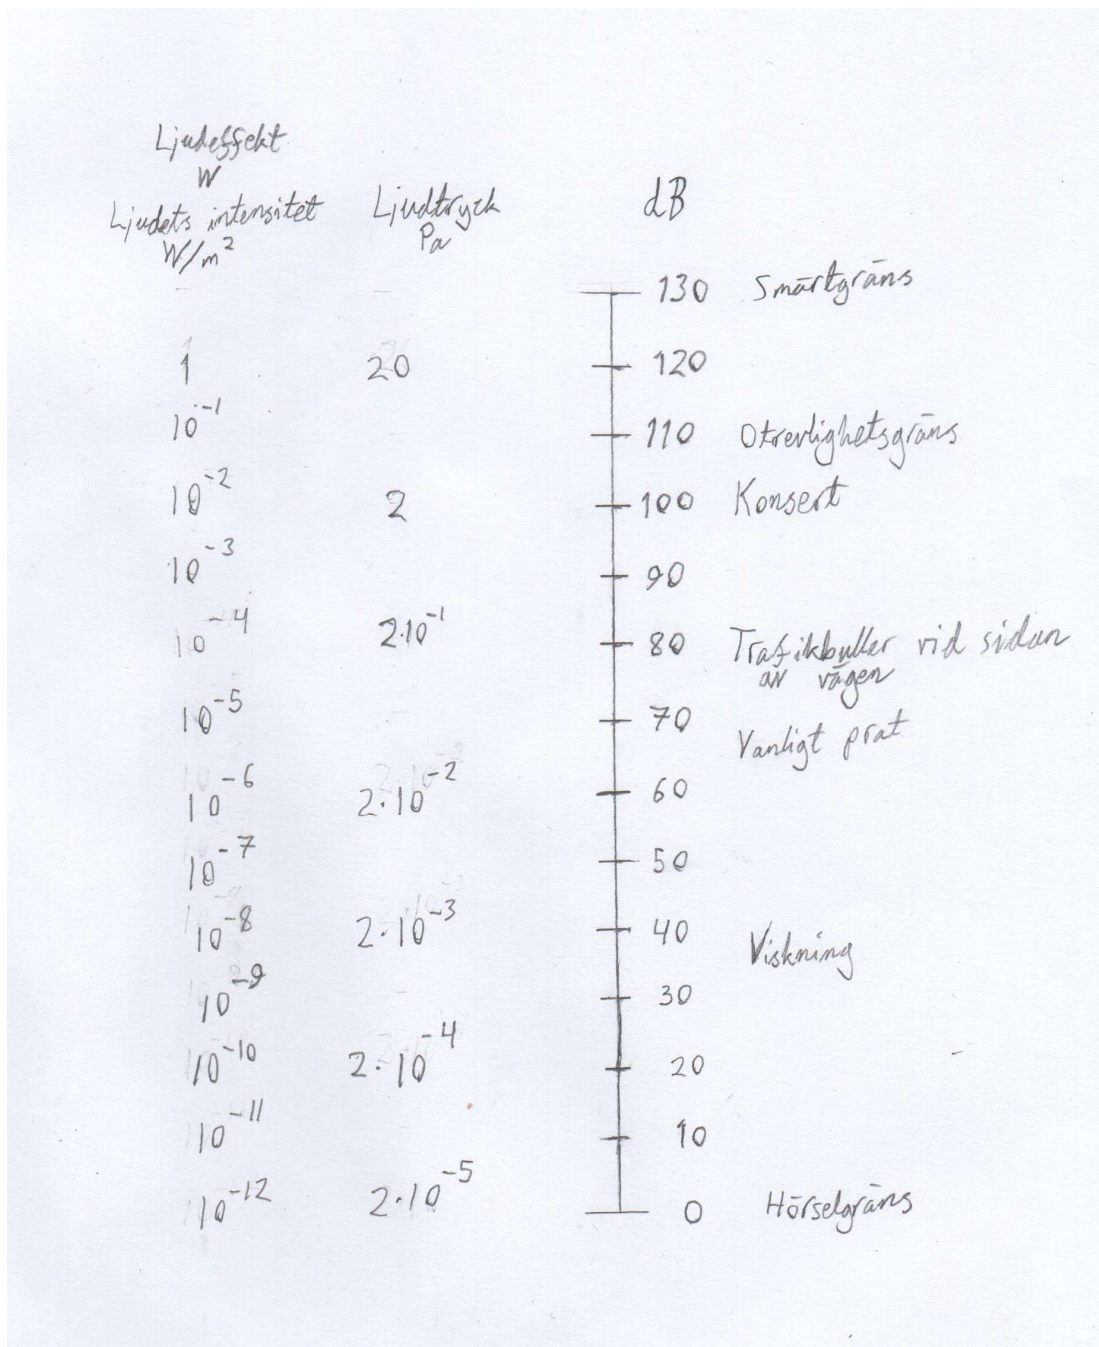 Ljudeffekt
W
Ljudets intensitet Ljudtryck dB
W/m² Pa
130 Smärtgräns
1 20 120
10⁻¹ 110 Otrevlighetsgräns
10⁻² 2 100 Konsert
10⁻³ 90
10⁻⁴ 2·10⁻¹ 80 Trafikbuller vid sidan
av vägen
10⁻⁵ 70
Vanligt prat
10⁻⁶ 2·10⁻² 60
10⁻⁷ 50
10⁻⁸ 2·10⁻³ 40
Viskning
10⁻⁹ 30
10⁻¹⁰ 2·10⁻⁴ 20
10⁻¹¹ 10
10⁻¹² 2·10⁻⁵ 0 Hörselgräns